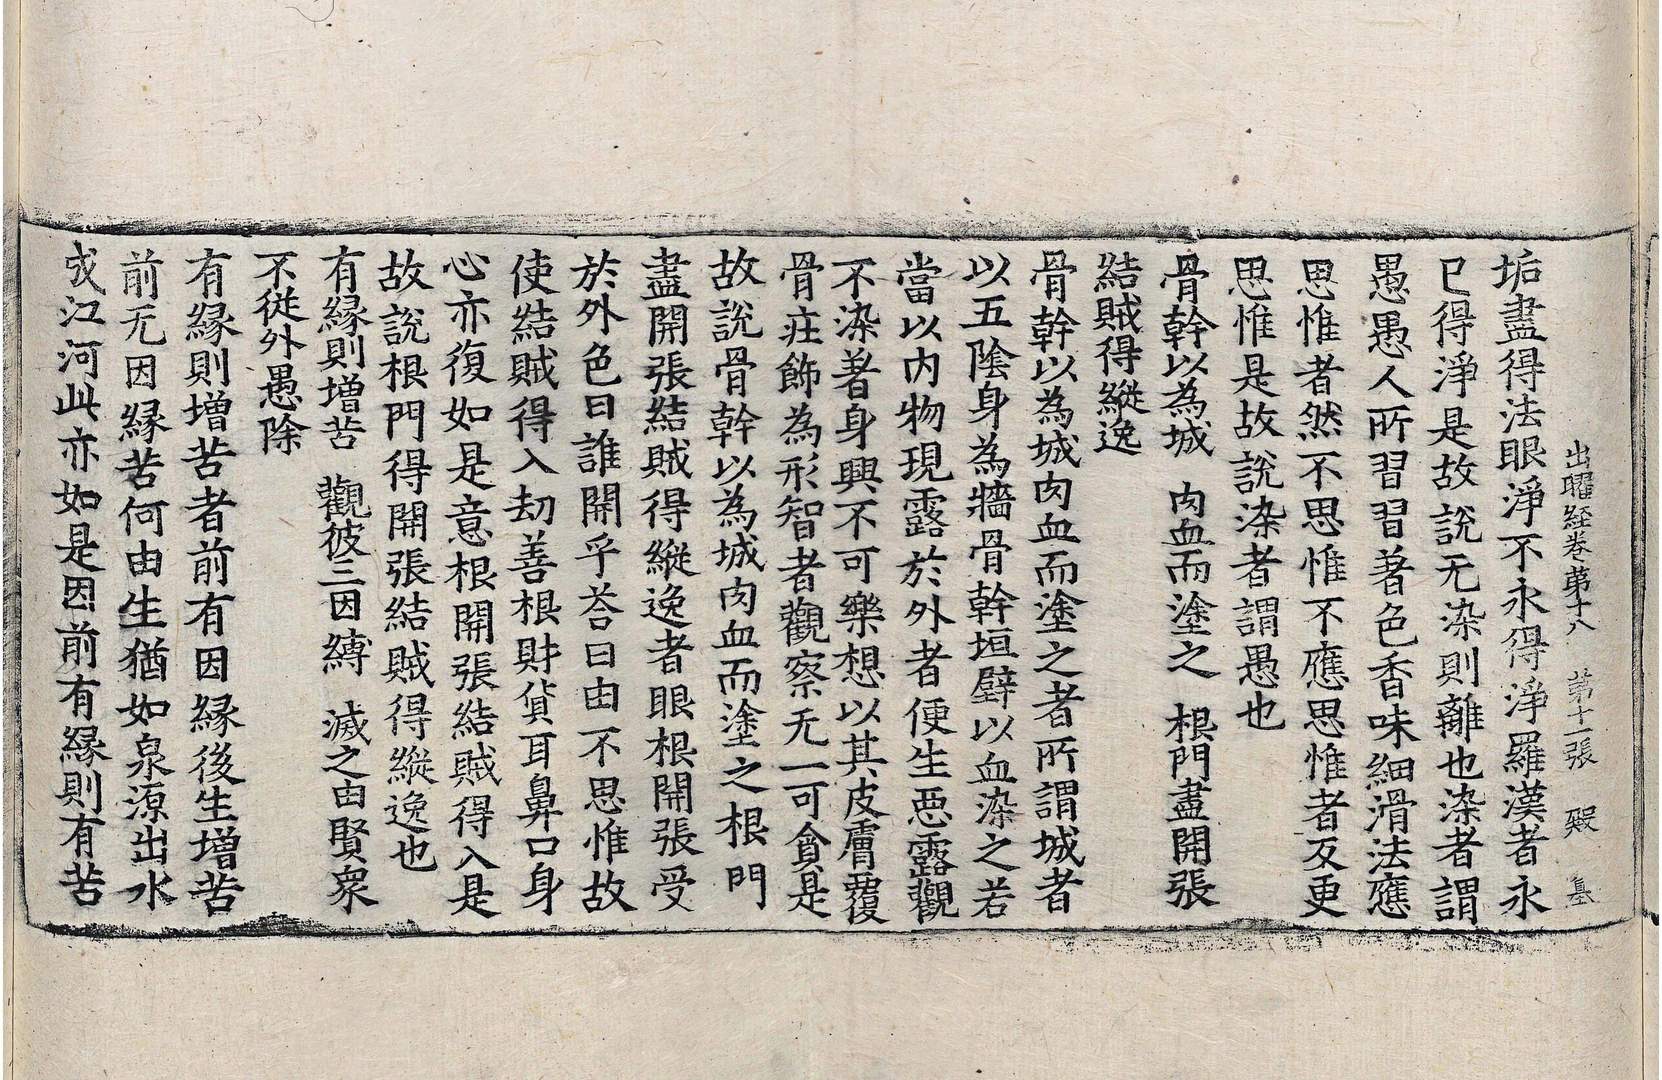 出曜経卷第十八　第十一張　殿
垢盡得法眼淨不永得淨羅漢者永
已得淨是故說无染則離也染者謂
愚愚人所習習著色香味細滑法應
思惟者然不思惟不應思惟者反更
思惟是故說染者謂愚也
骨幹以為城　肉血而塗之　根門盡開張
結賊得縱逸
骨幹以為城肉血而塗之者所謂城者
以五陰身為牆骨幹垣壁以血染之若
當以內物現露於外者便生惡露觀
不染著身興不可樂想以其皮膚覆
骨莊飾為形智者觀察无一可貪是
故說骨幹以為城肉血而塗之根門
盡開張結賊得縱逸者眼根開張受
於外色曰誰開乎荅曰由不思惟故
使結賊得入劫善根財貨耳鼻口身
心亦復如是意根開張結賊得入是
故說根門得開張結賊得縱逸也
有縁則增苦　觀彼三因縛　滅之由賢衆
不從外愚除
有縁則增苦者前有因縁後生增苦
前无因縁苦何由生猶如泉源出水
成江河此亦如是因前有縁則有苦